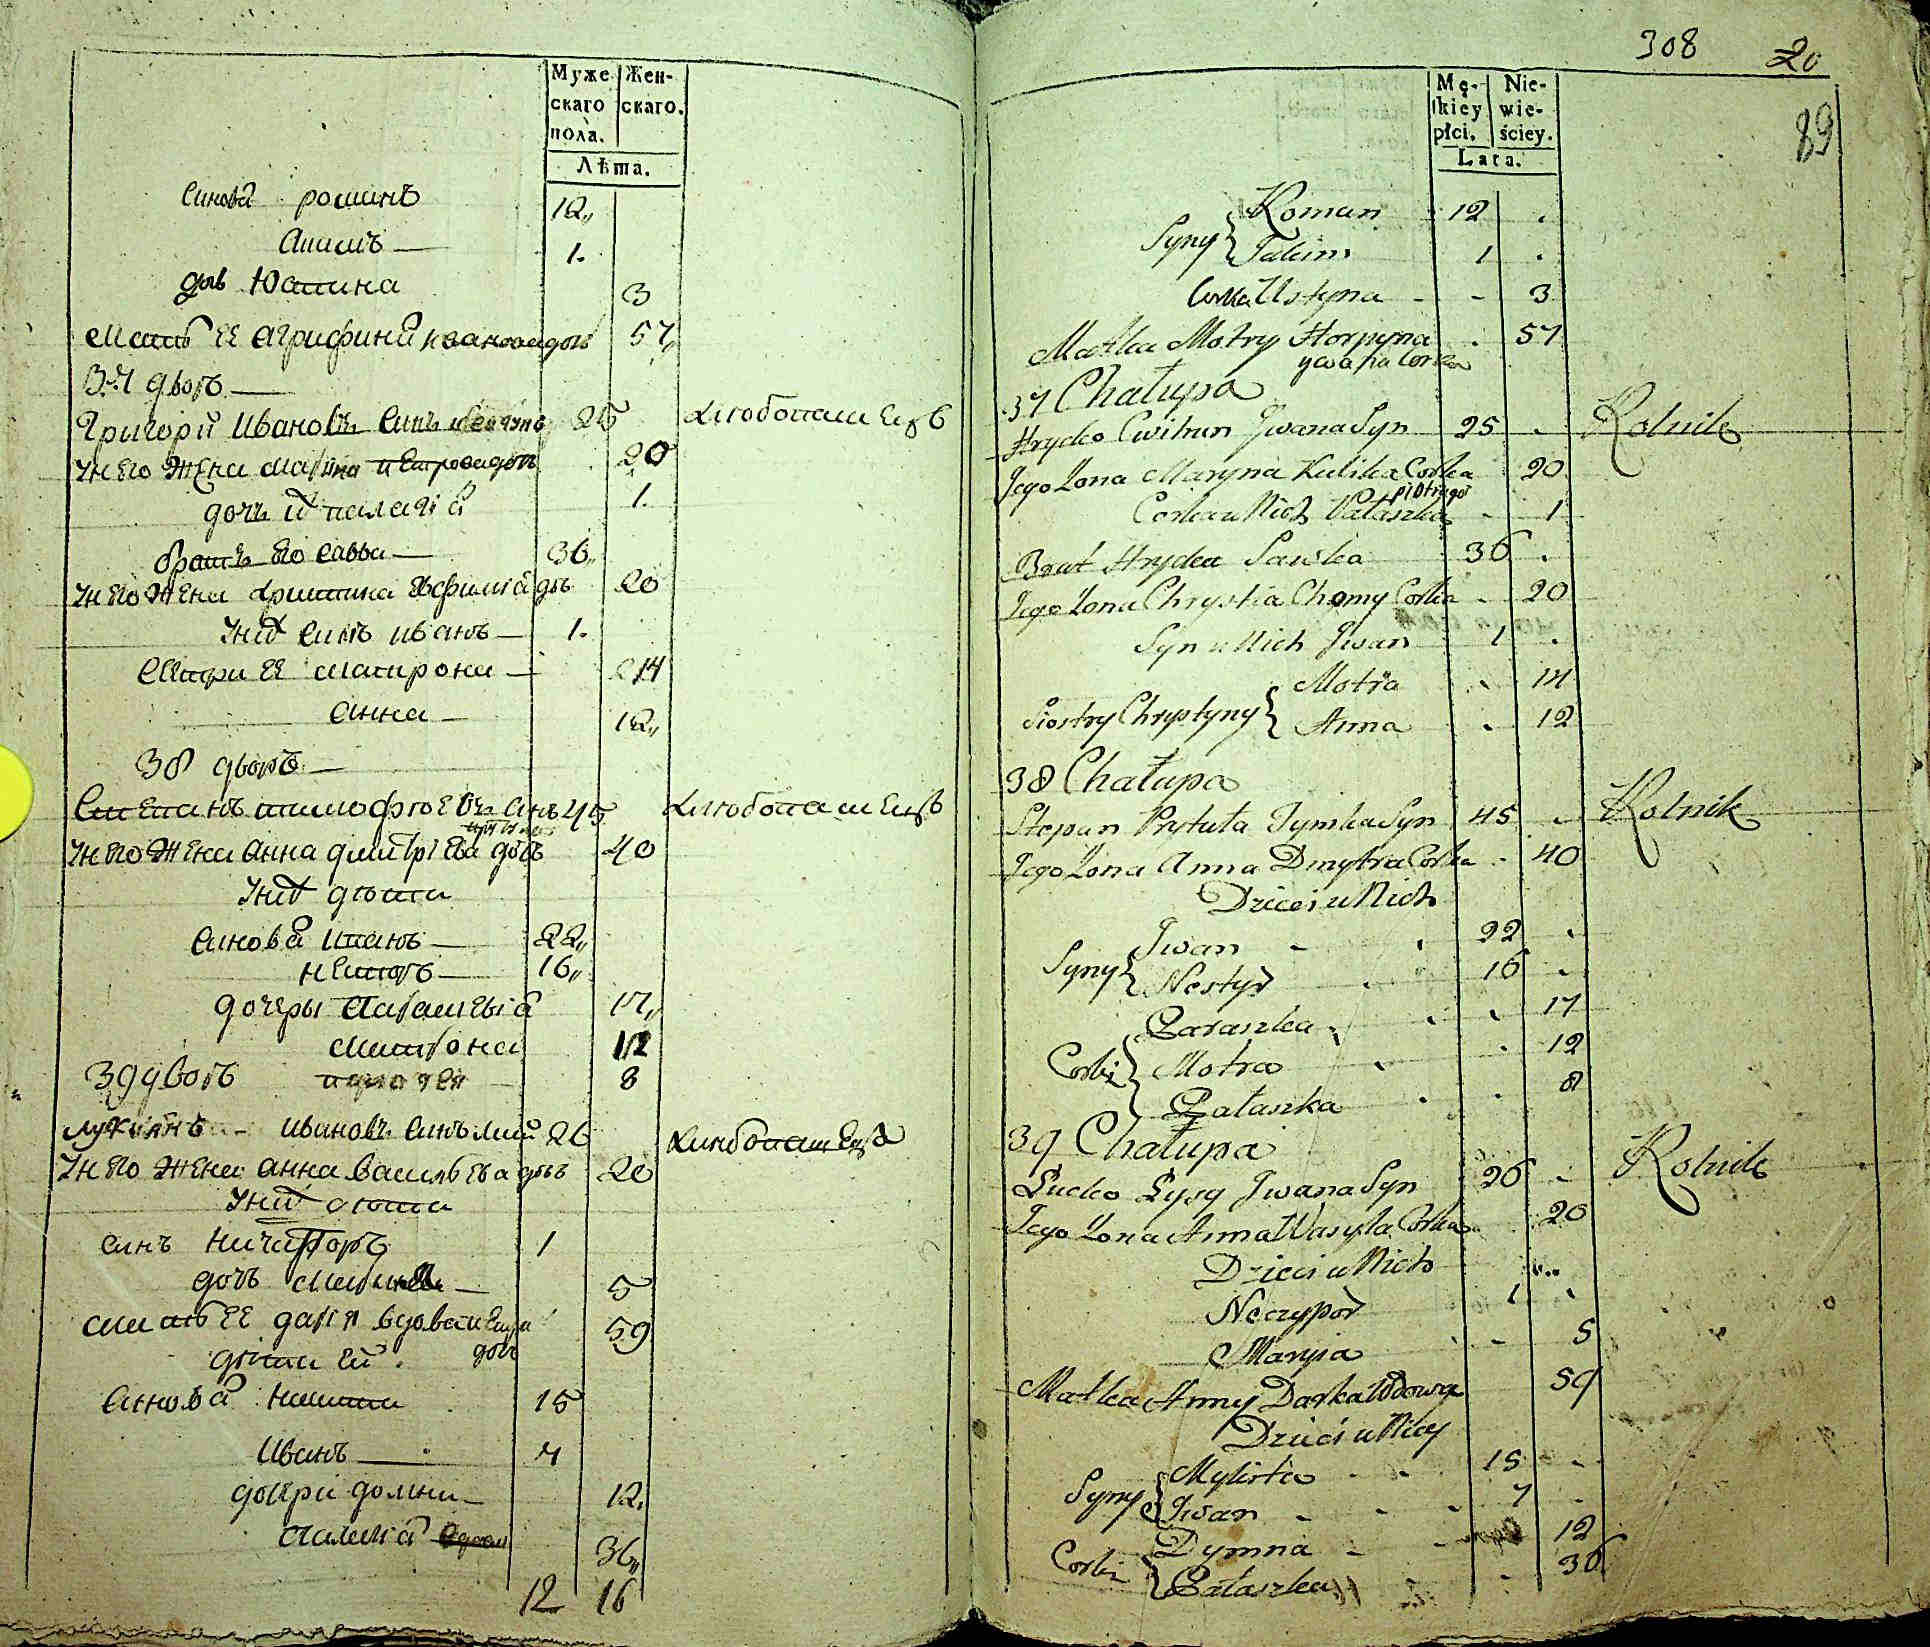 Муже
скаго
пола.
Жен-
скаго.
Лѣта.
синовя романъ 12
1.
дочь Юстина 3
мать ее агрифина ивановна дочь 57
37 дворъ
Григорій Ивановъ синъ 25 хлебопашецъ
у него жена марина петрова дочь 20
дочь пелагія 1.
братъ его савва 36
у него жена христина дочь 20
у нихъ синъ иванъ 1.
сестри ее матрона 14
анна 12
38 дворъ
Степанъ тимофѣевъ синъ 45 хлебопашецъ
у него жена анна дмитріева дочь 40
у нихъ дѣти
синовя иванъ 22
несторъ 16
дочеры параскевія 17
матрона 12
39 дворъ 8
ивановъ синъ лисій 26 хлебопашецъ
у него жена анна васильева дочь 20
у нихъ дѣти
синъ ничипоръ 1
дочь 5
мать ее дарія вдова 59
дочь
дѣти ей
синовя никита 15
Иванъ 7
дочери домна 12
36
12 16
308 20
89
Mę-
skiey
płci.
Nie-
wie-
ściey.
Lata.
Syny Roman 12
Jakim 1
Corka Ustyna 3
Matka Motry Horpyna 57
Jwana Corka
37 Chałupa
Hrycko Cwihun Jwana Syn 25 Rolnik
Jego Zona Maryna Kulika Corka 20
Piotra
Corka u Nich Pałaszka 1
Brat Hrycka Sawka 36
Jego Zona Chrystia Chomy Corka 20
Syn u Nich Jwan 1
Siostry Chrystyny Motra 14
Anna 12
38 Chałupa
Stepan Prytuła Tymka Syn 45 Rolnik
Jego Zona Anna Dmytra Corka 40
Dzieci u Nich
Syny Jwan 22
Nestyr 16
Corki Paraszka 17
Motra 12
Pałaszka 8
39 Chałupa
Łucko Łysy Jwana Syn 26 Rolnik
Jego Zona Anna Wasyla Corka 20
Dzieci u Nich
Neczypor 1
Maryia 5
Matka Anny Darka Wdowa 59
Dzieci u Niey
Syny Mykita 15
Jwan 7
Corki Dymna 12
Pałaszka 36